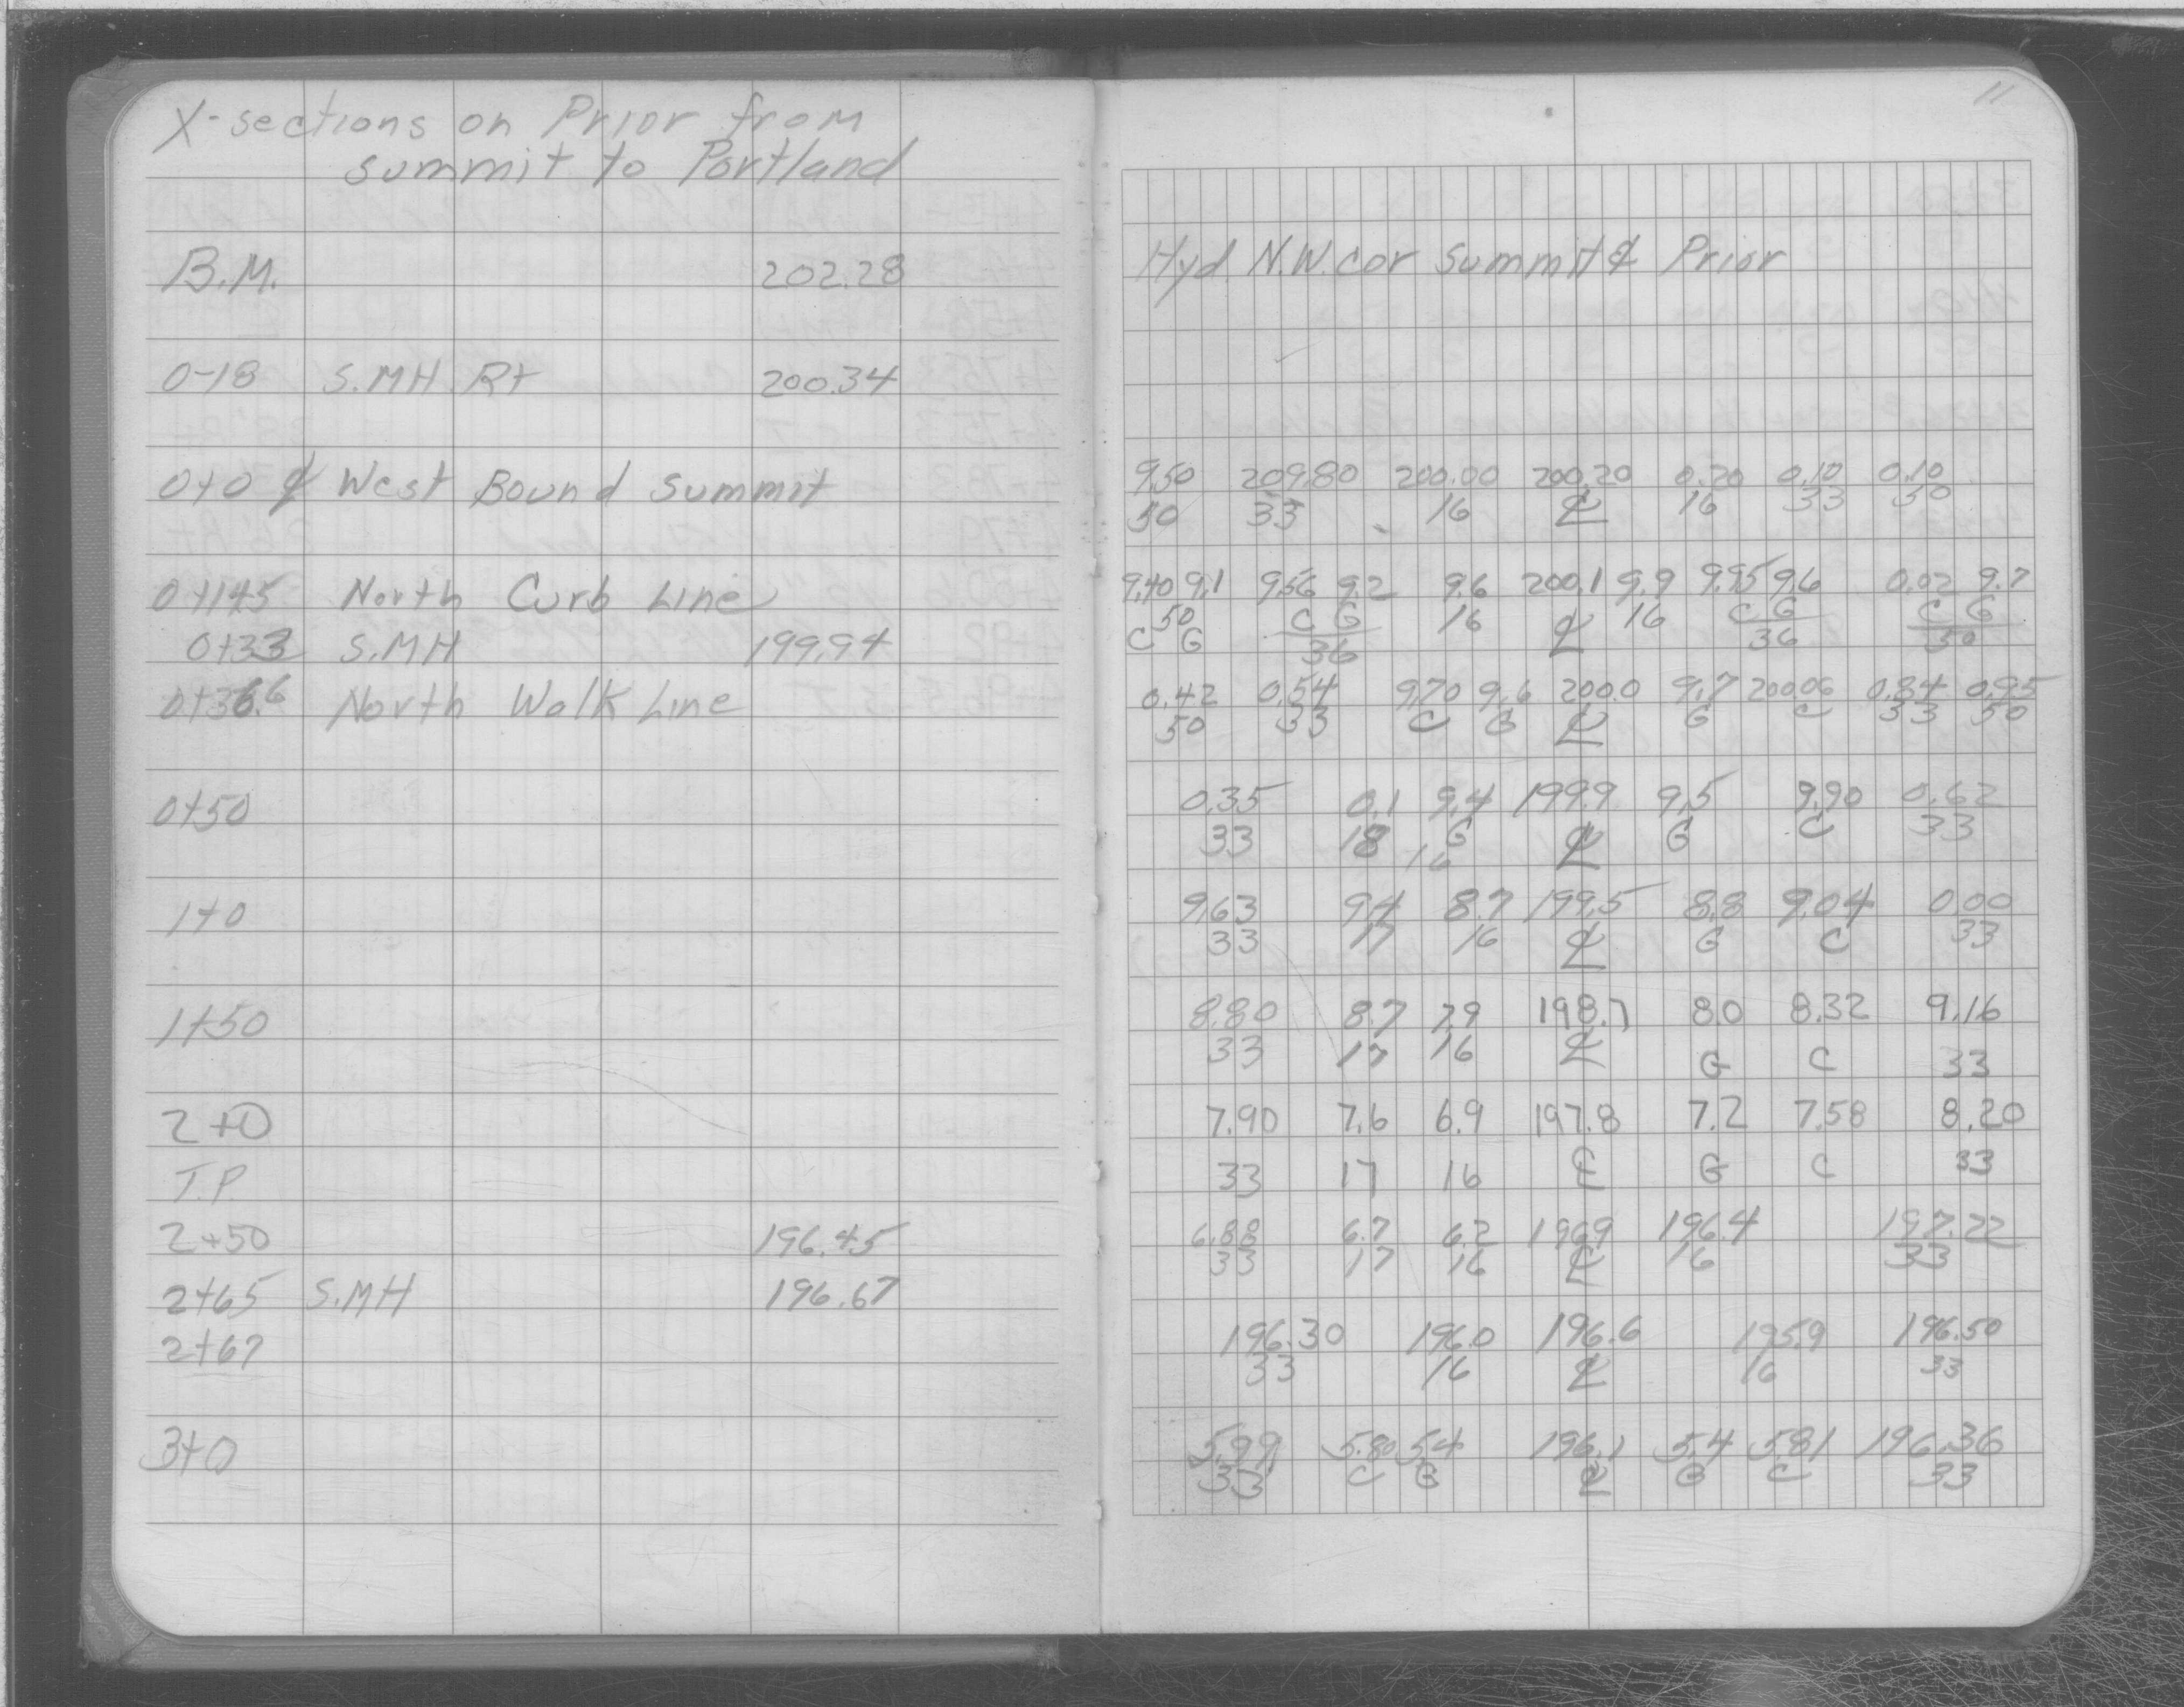 X-sections on Prior from
summit to Portland
B.M. 202.28
0-18 S.MH Rt 200.34
0+0 ℄ West Bound Summit
0+145 North Curb Line
0+33 S.MH 199.94
0+36.6 North Walk Line
0+50
1+0
1+50
2+0
T.P
2+50 196.45
2+65 S.MH 196.67
2+67
3+0
11
Hyd. N.W. cor Summit & Prior
9.50 209.80 200.00 200.20 0.20 0.10 0.10
50 33 16 ℄ 16 33 50
9.40 9.1 9.56 9.2 9.6 200.1 9.9 9.95 9.6 0.02 9.7
50 C G 16 ℄ 16 C G C G
C G 36 36 50
0.42 0.54 9.70 9.6 200.0 9.7 200.06 0.84 0.95
50 33 C G ℄ G C 33 50
0.35 0.1 9.4 199.9 9.5 9.90 0.62
33 18 G ℄ G C 33
16
9.63 9.4 8.7 199.5 8.8 9.04 0.00
33 17 16 ℄ G C 33
8.80 8.7 7.9 198.7 8.0 8.32 9.16
33 17 16 ℄ G C 33
7.90 7.6 6.9 197.8 7.2 7.58 8.20
33 17 16 ℄ G C 33
6.88 6.7 6.2 196.9 196.4 197.22
33 17 16 ℄ 16 33
196.30 196.0 196.6 195.9 196.50
33 16 ℄ 16 33
5.99 5.80 5.4 196.1 5.4 5.81 196.36
33 C G ℄ G C 33